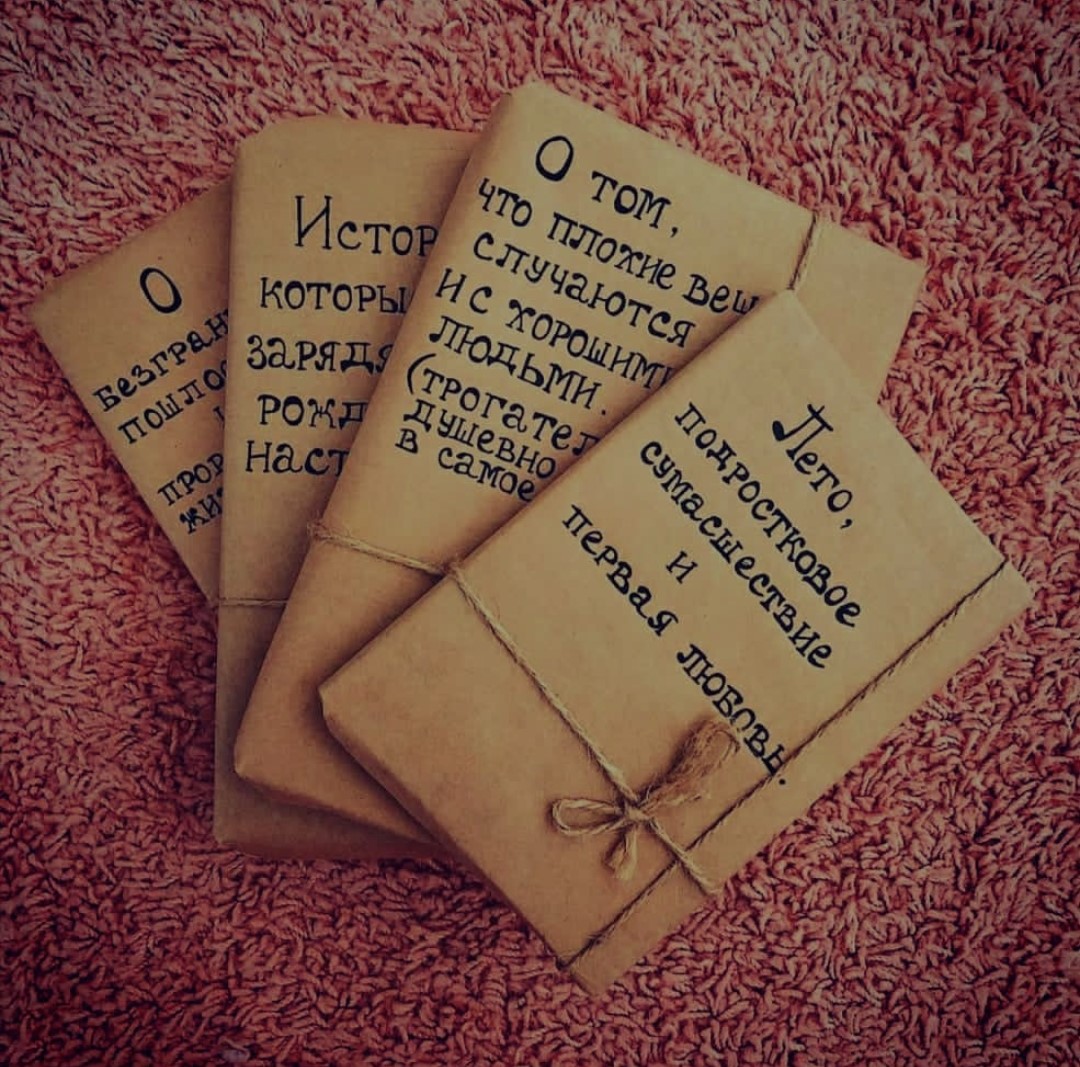 О
безгран
пошло
прор
жи
Истор
которы
заряд
рожд
наст
О том,
что плохие вещ
случаются
и с хорошими
людьми.
(трогател
душевно
в самое
Лето,
подростковое
сумасшествие
и
первая любовь.